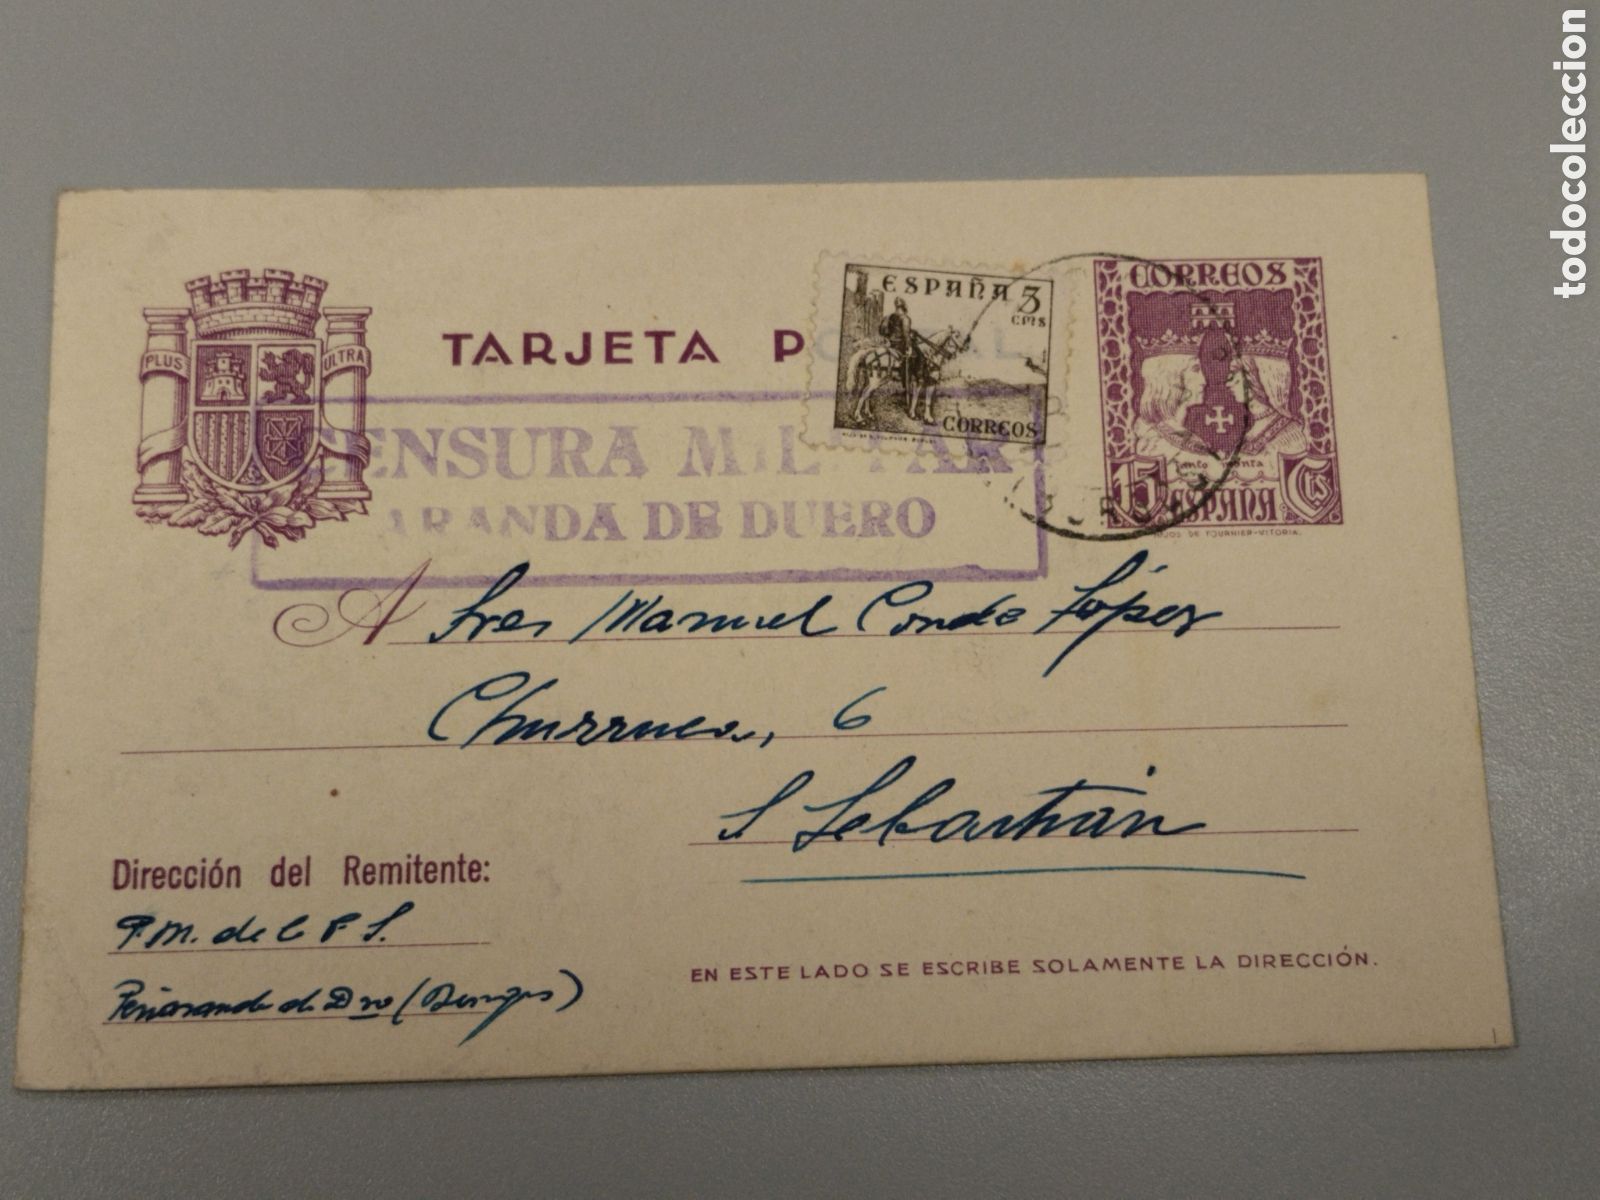 todocoleccion
PLUS ULTRA
TARJETA P
ESPAÑA 3
CTMS
CORREOS
CORREOS
tanto monta
15 Cts
ESPAÑA
HIJOS DE FOURNIER-VITORIA.
CENSURA MILITAR
ARANDA DE DUERO
A Sres Manuel Conde López
Churruca, 6
S Sebastián
Dirección del Remitente:
P.M. de la P S.
Peñaranda de Dro (Burgos)
EN ESTE LADO SE ESCRIBE SOLAMENTE LA DIRECCIÓN.